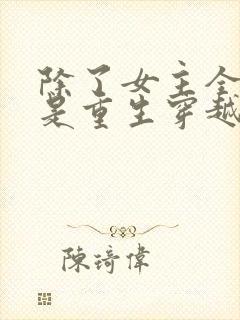 除了女主全
是重生穿越
陳琦偉